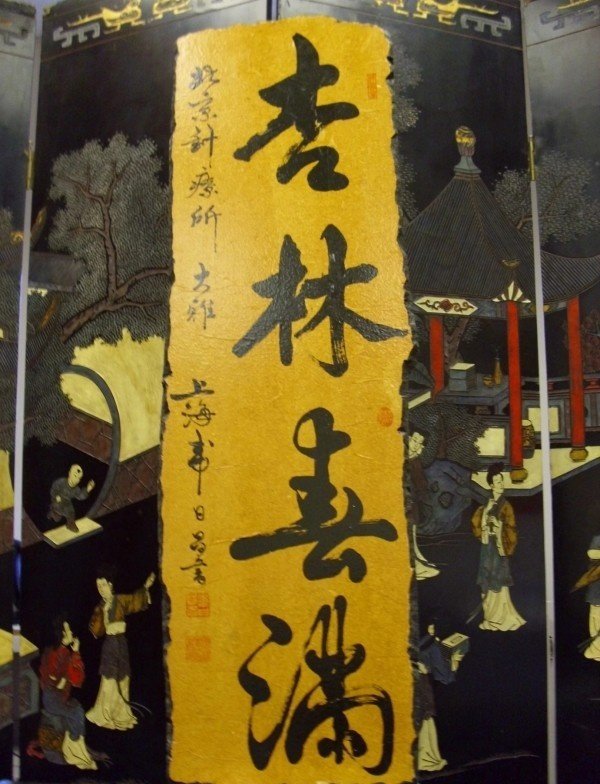 杏林春满
北京针疗所 大雅
上海市日昌书